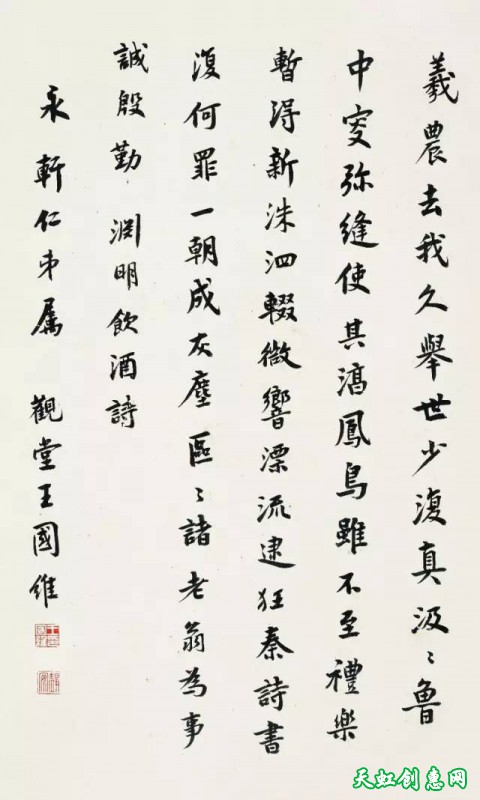 羲農去我久舉世少復真汲〻魯
中叟弥縫使其淳鳳鳥雖不至禮樂
暫得新洙泗輟微響漂流逮狂秦詩書
復何罪一朝成灰塵區〻諸老翁為事
誠殷勤 渕明飲酒詩
永軒仁弟属 觀堂王國維
天虹创惠网